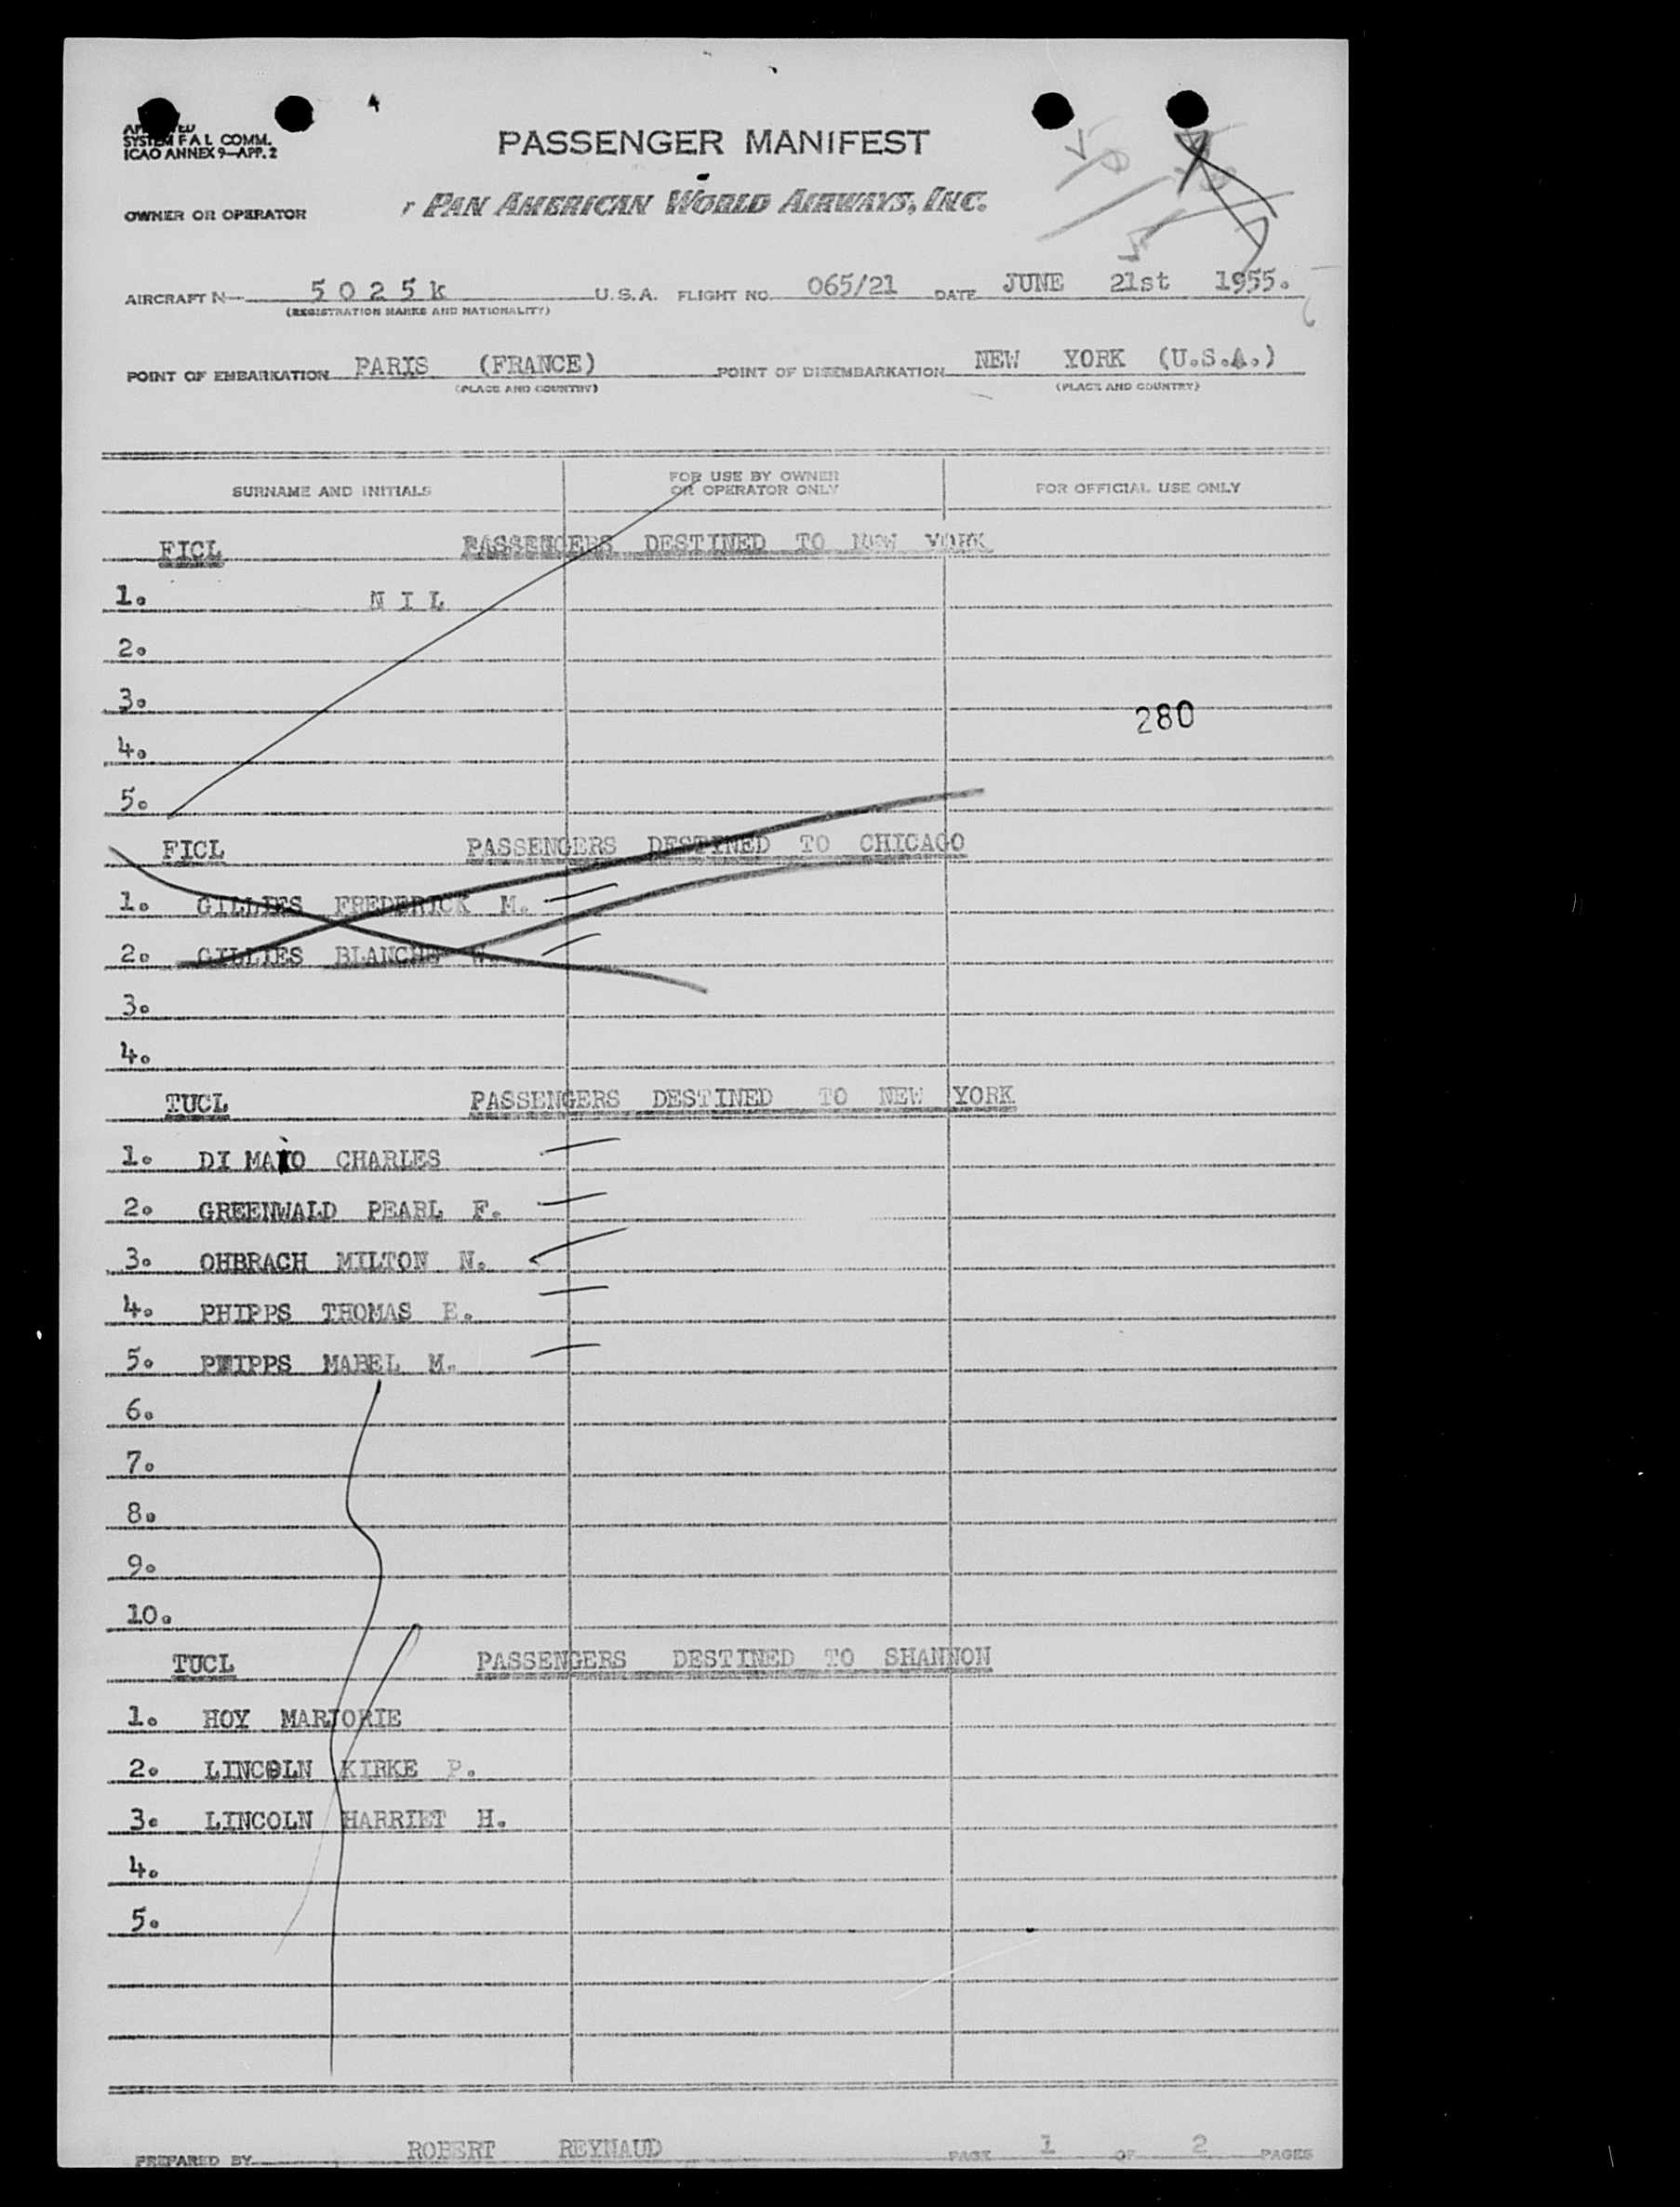 SYSTEM F A L COMM.
ICAO ANNEX 9—APP. 2
PASSENGER MANIFEST
OWNER OR OPERATOR PAN AMERICAN WORLD AIRWAYS, INC.
AIRCRAFT N 5025k U.S.A. FLIGHT NO. 065/21 DATE JUNE 21st 1955.
(REGISTRATION MARKS AND NATIONALITY)
POINT OF EMBARKATION PARIS (FRANCE) POINT OF DISEMBARKATION NEW YORK (U.S.A.)
(PLACE AND COUNTRY) (PLACE AND COUNTRY)
SURNAME AND INITIALS FOR USE BY OWNER OR OPERATOR ONLY FOR OFFICIAL USE ONLY
FICL PASSENGERS DESTINED TO NEW YORK
1. N I L
2.
3.
280
4.
5.
FICL PASSENGERS DESTINED TO CHICAGO
1. GILLIES FREDERICK M.
2. GILLIES BLANCHE W.
3.
4.
TUCL PASSENGERS DESTINED TO NEW YORK
1. DI MAIO CHARLES
2. GREENWALD PEARL F.
3. OHBRACH MILTON N.
4. PHIPPS THOMAS E.
5. PHIPPS MABEL M.
6.
7.
8.
9.
10.
TUCL PASSENGERS DESTINED TO SHANNON
1. HOY MARJORIE
2. LINCOLN KIRKE P.
3. LINCOLN HARRIET H.
4.
5.
PREPARED BY ROBERT REYNAUD PAGE 1 OF 2 PAGES